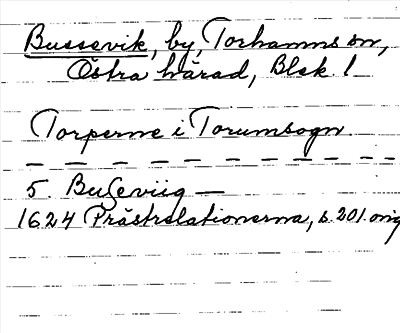 Bussevik, by, Torhamns sn,
Östra härad, Blek. l
Torperne i Torumsogn.
— — — — — — — — — — — —
5. Buſeviig —
1624 Prästrelationerna, s. 201. orig